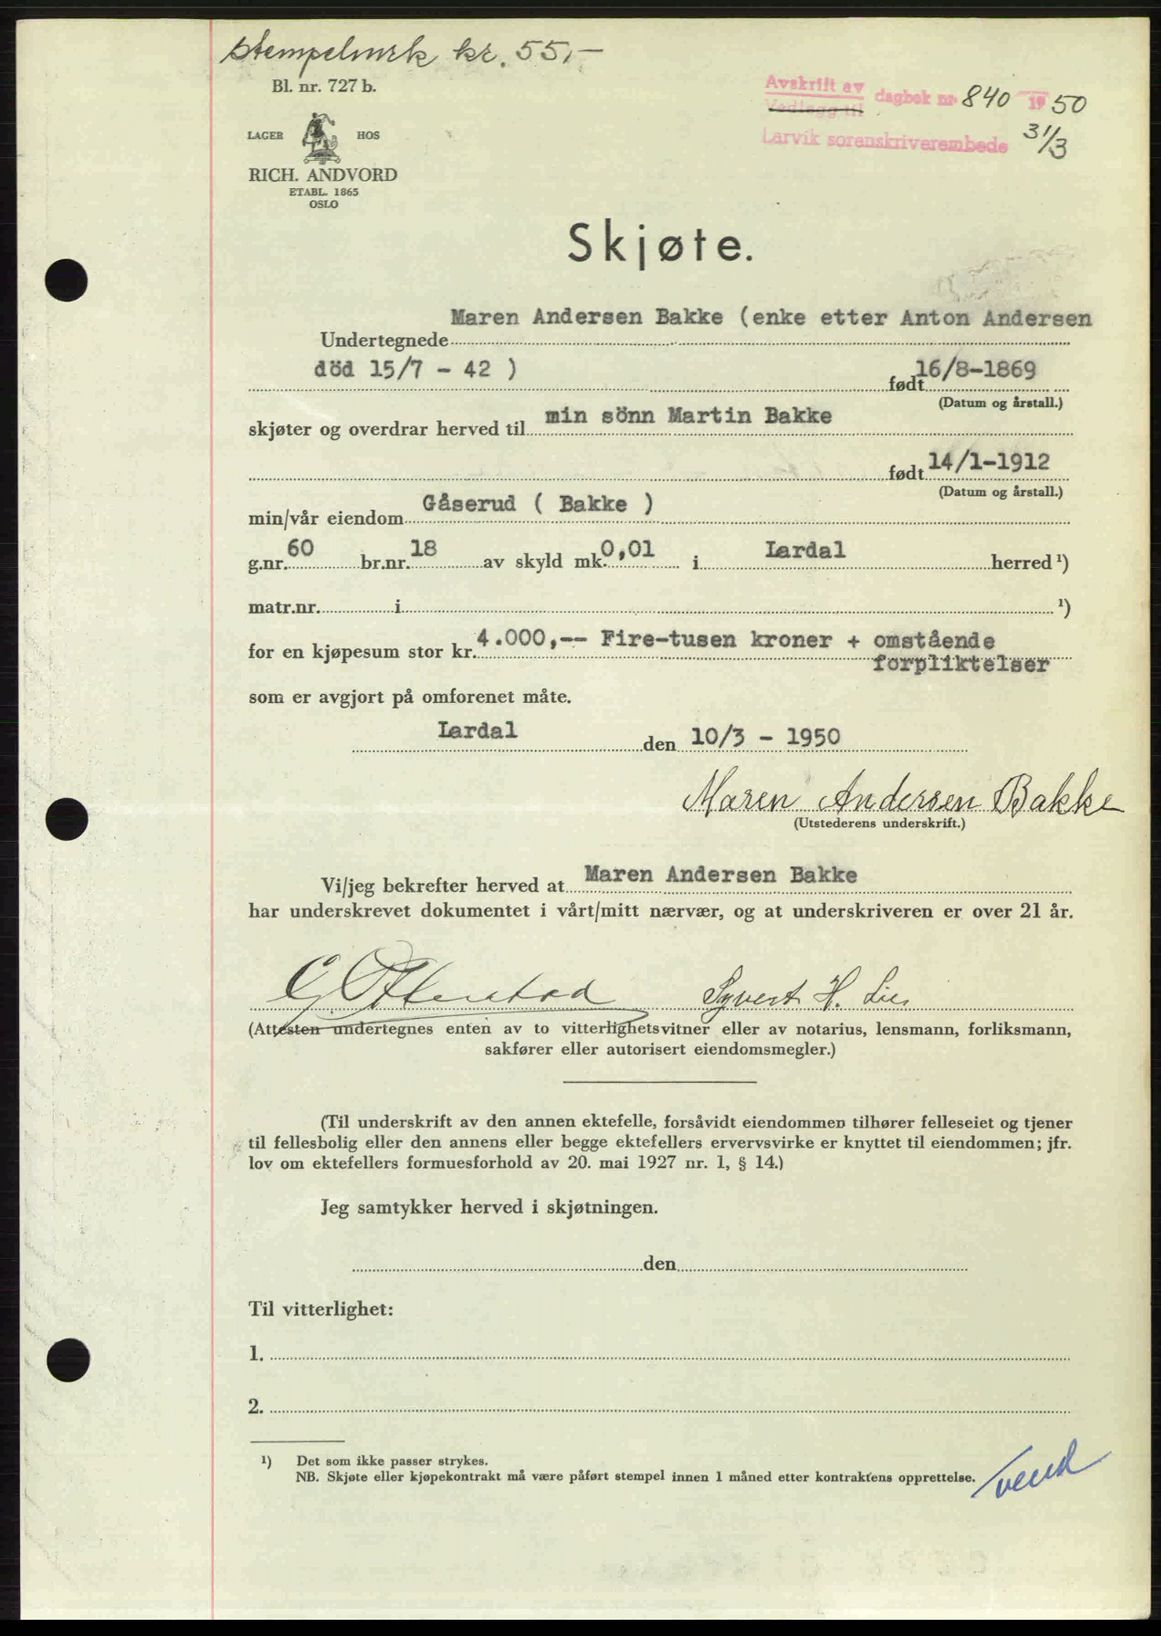 Stempelmerk kr. 55,-
Bl. nr. 727 b.
Avskrift av dagbok nr 840 1950
Vedlegg til
Larvik sorenskriverembede 31/3
LAGER HOS
RICH. ANDVORD
ETABL. 1865
OSLO
Skjøte.
Maren Andersen Bakke (enke etter Anton Andersen
Undertegnede
död 15/7 - 42 ) født 16/8-1869
(Datum og årstall.)
skjøter og overdrar herved til min sönn Martin Bakke
født 14/1-1912
(Datum og årstall.)
min/vår eiendom Gåserud ( Bakke )
g.nr. 60 br.nr. 18 av skyld mk. 0,01 i Lardal herred ¹)
matr.nr. i ¹)
for en kjøpesum stor kr. 4.000,-- Fire-tusen kroner + omstående
forpliktelser
som er avgjort på omforenet måte.
Lardal den 10/3 - 1950
Maren Andersen Bakke
(Utstederens underskrift.)
Vi/jeg bekrefter herved at Maren Andersen Bakke
har underskrevet dokumentet i vårt/mitt nærvær, og at underskriveren er over 21 år.
Syvert H. Lie
(Attesten undertegnes enten av to vitterlighetsvitner eller av notarius, lensmann, forliksmann,
sakfører eller autorisert eiendomsmegler.)
(Til underskrift av den annen ektefelle, forsåvidt eiendommen tilhører felleseiet og tjener
til fellesbolig eller den annens eller begge ektefellers ervervsvirke er knyttet til eiendommen; jfr.
lov om ektefellers formuesforhold av 20. mai 1927 nr. 1, § 14.)
Jeg samtykker herved i skjøtningen.
den
Til vitterlighet:
1.
2.
¹) Det som ikke passer strykes.
NB. Skjøte eller kjøpekontrakt må være påført stempel innen 1 måned etter kontraktens opprettelse.
vend